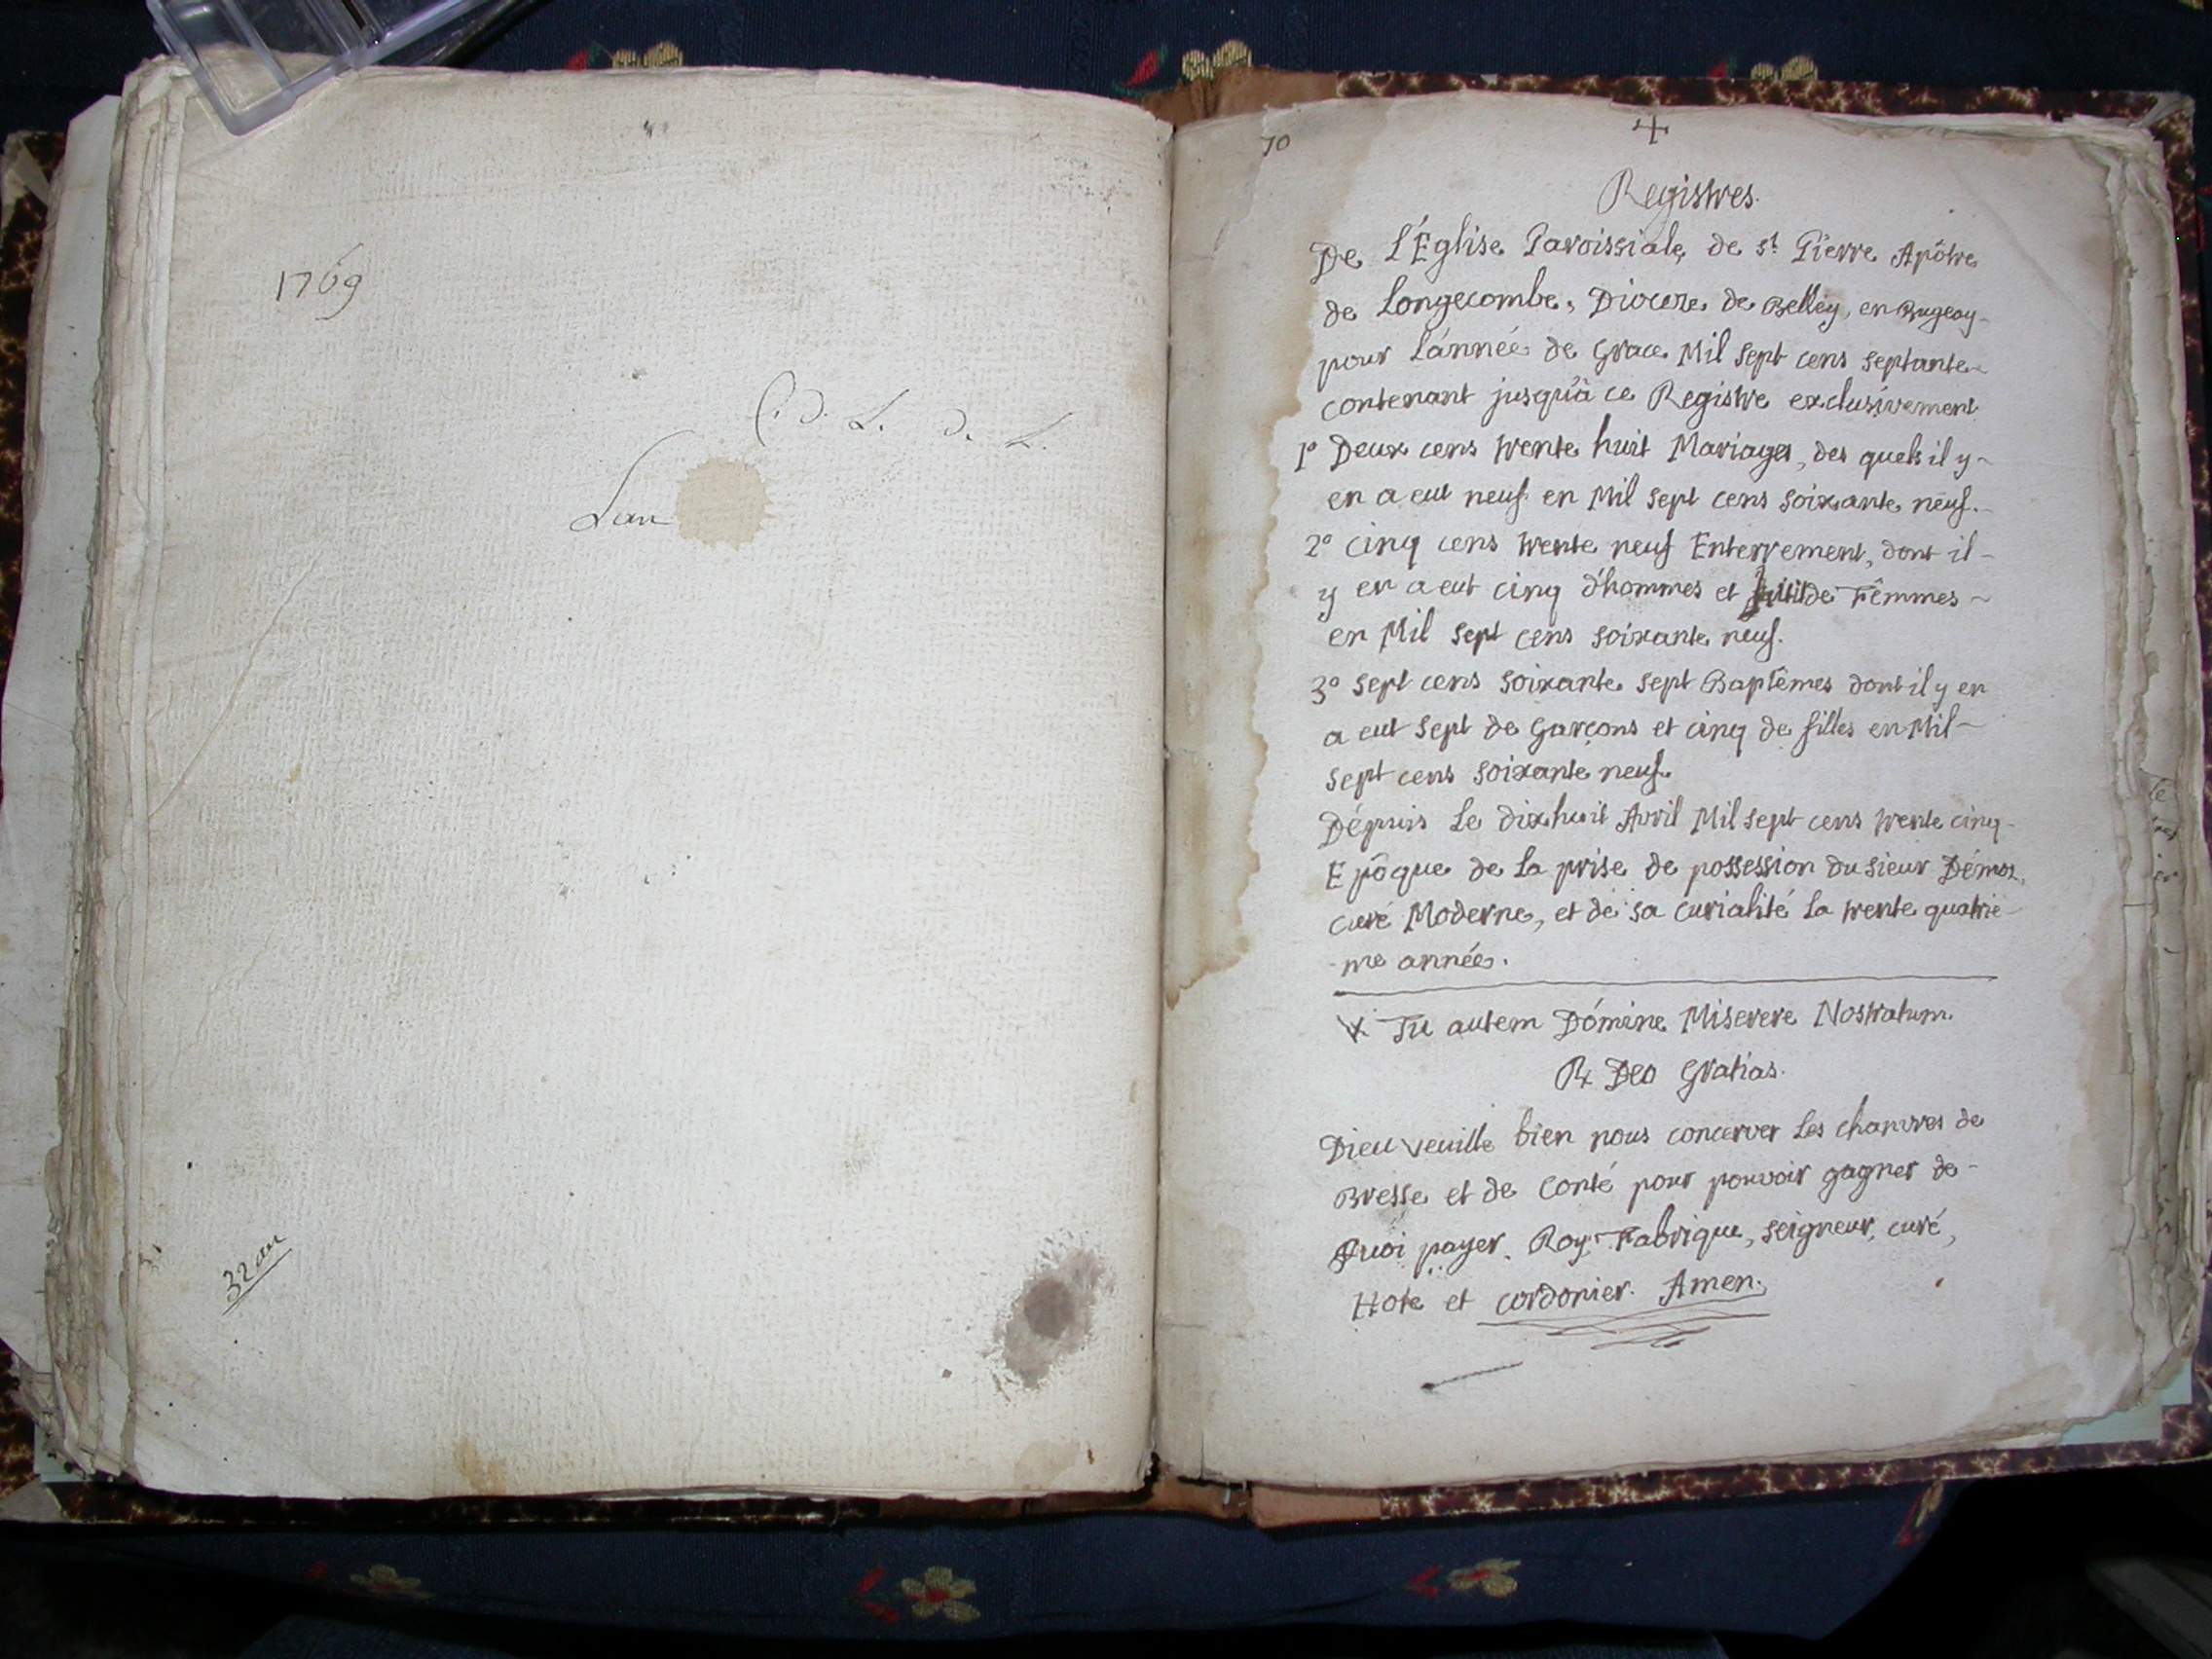 1769
C. d. L. d. L.
Lan
32 an
70
+
Registres.
De L'Église Paroissiale de St. Pierre Apôtre
de Longecombe, Diocese de Belley, en Bugeay
pour L'année de Grace Mil Sept cens septante
contenant jusqu'à ce Registre exclusivement
1º Deux cens trente huit Mariages, des quels il y
en a eut neuf en Mil Sept cens Soixante neuf.
2º cinq cens trente neuf Enterrement, dont il
y en a eut cinq d'hommes et huit de Femmes
en Mil Sept cens Soixante neuf.
3º Sept cens Soixante Sept Baptêmes dont il y en
a eut Sept de Garçons et cinq de filles en Mil
Sept cens Soixante neuf.
Dépuis Le dixhuit Avril Mil Sept cens trente cinq
Epôque de La prise de possession du Sieur Démoz
curé Moderne, et de sa curialité La trente quatrie-
-me année.
℣ Tu autem Dómine Miserere Nostratum.
℟ Deo Gratias.
Dieu veuille bien nous concerver Les chanvres de
Bresse et de Conté pour pouvoir gagner de
Quoi payer, Roy, Fabrique, Seigneur, curé,
Hote et cordonier. Amen.